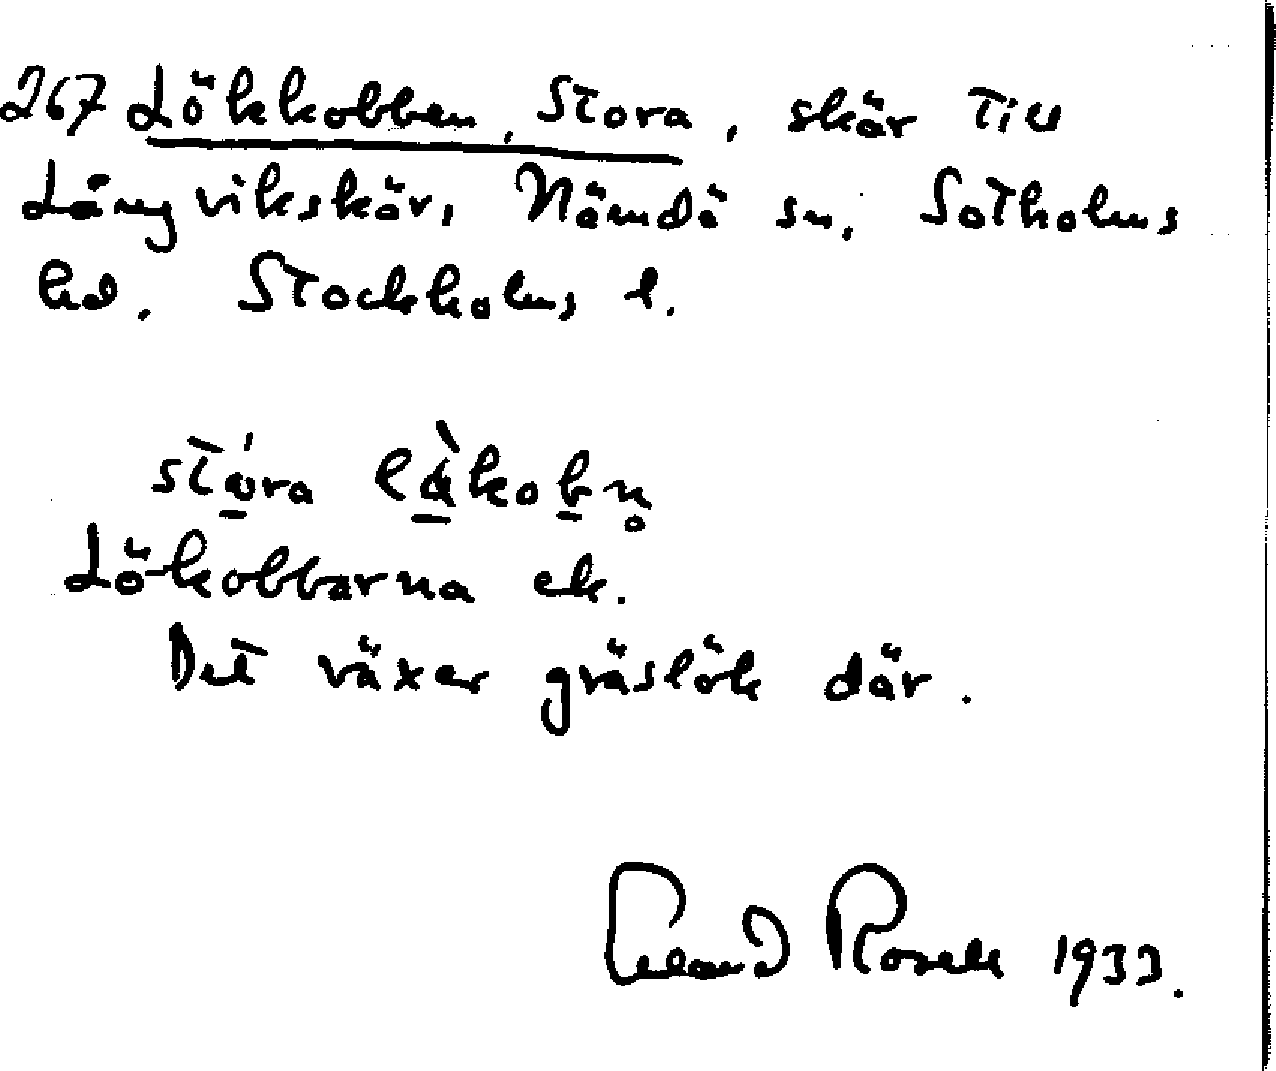 267 Lökkobben, Stora, skär till
Långvikskär, Nämdö sn, Sotholms
hd. Stockholms l.
stóra làkobn̥
Lökobbarna ek.
Det växer gräslök där.
Erland Rosell 1933.